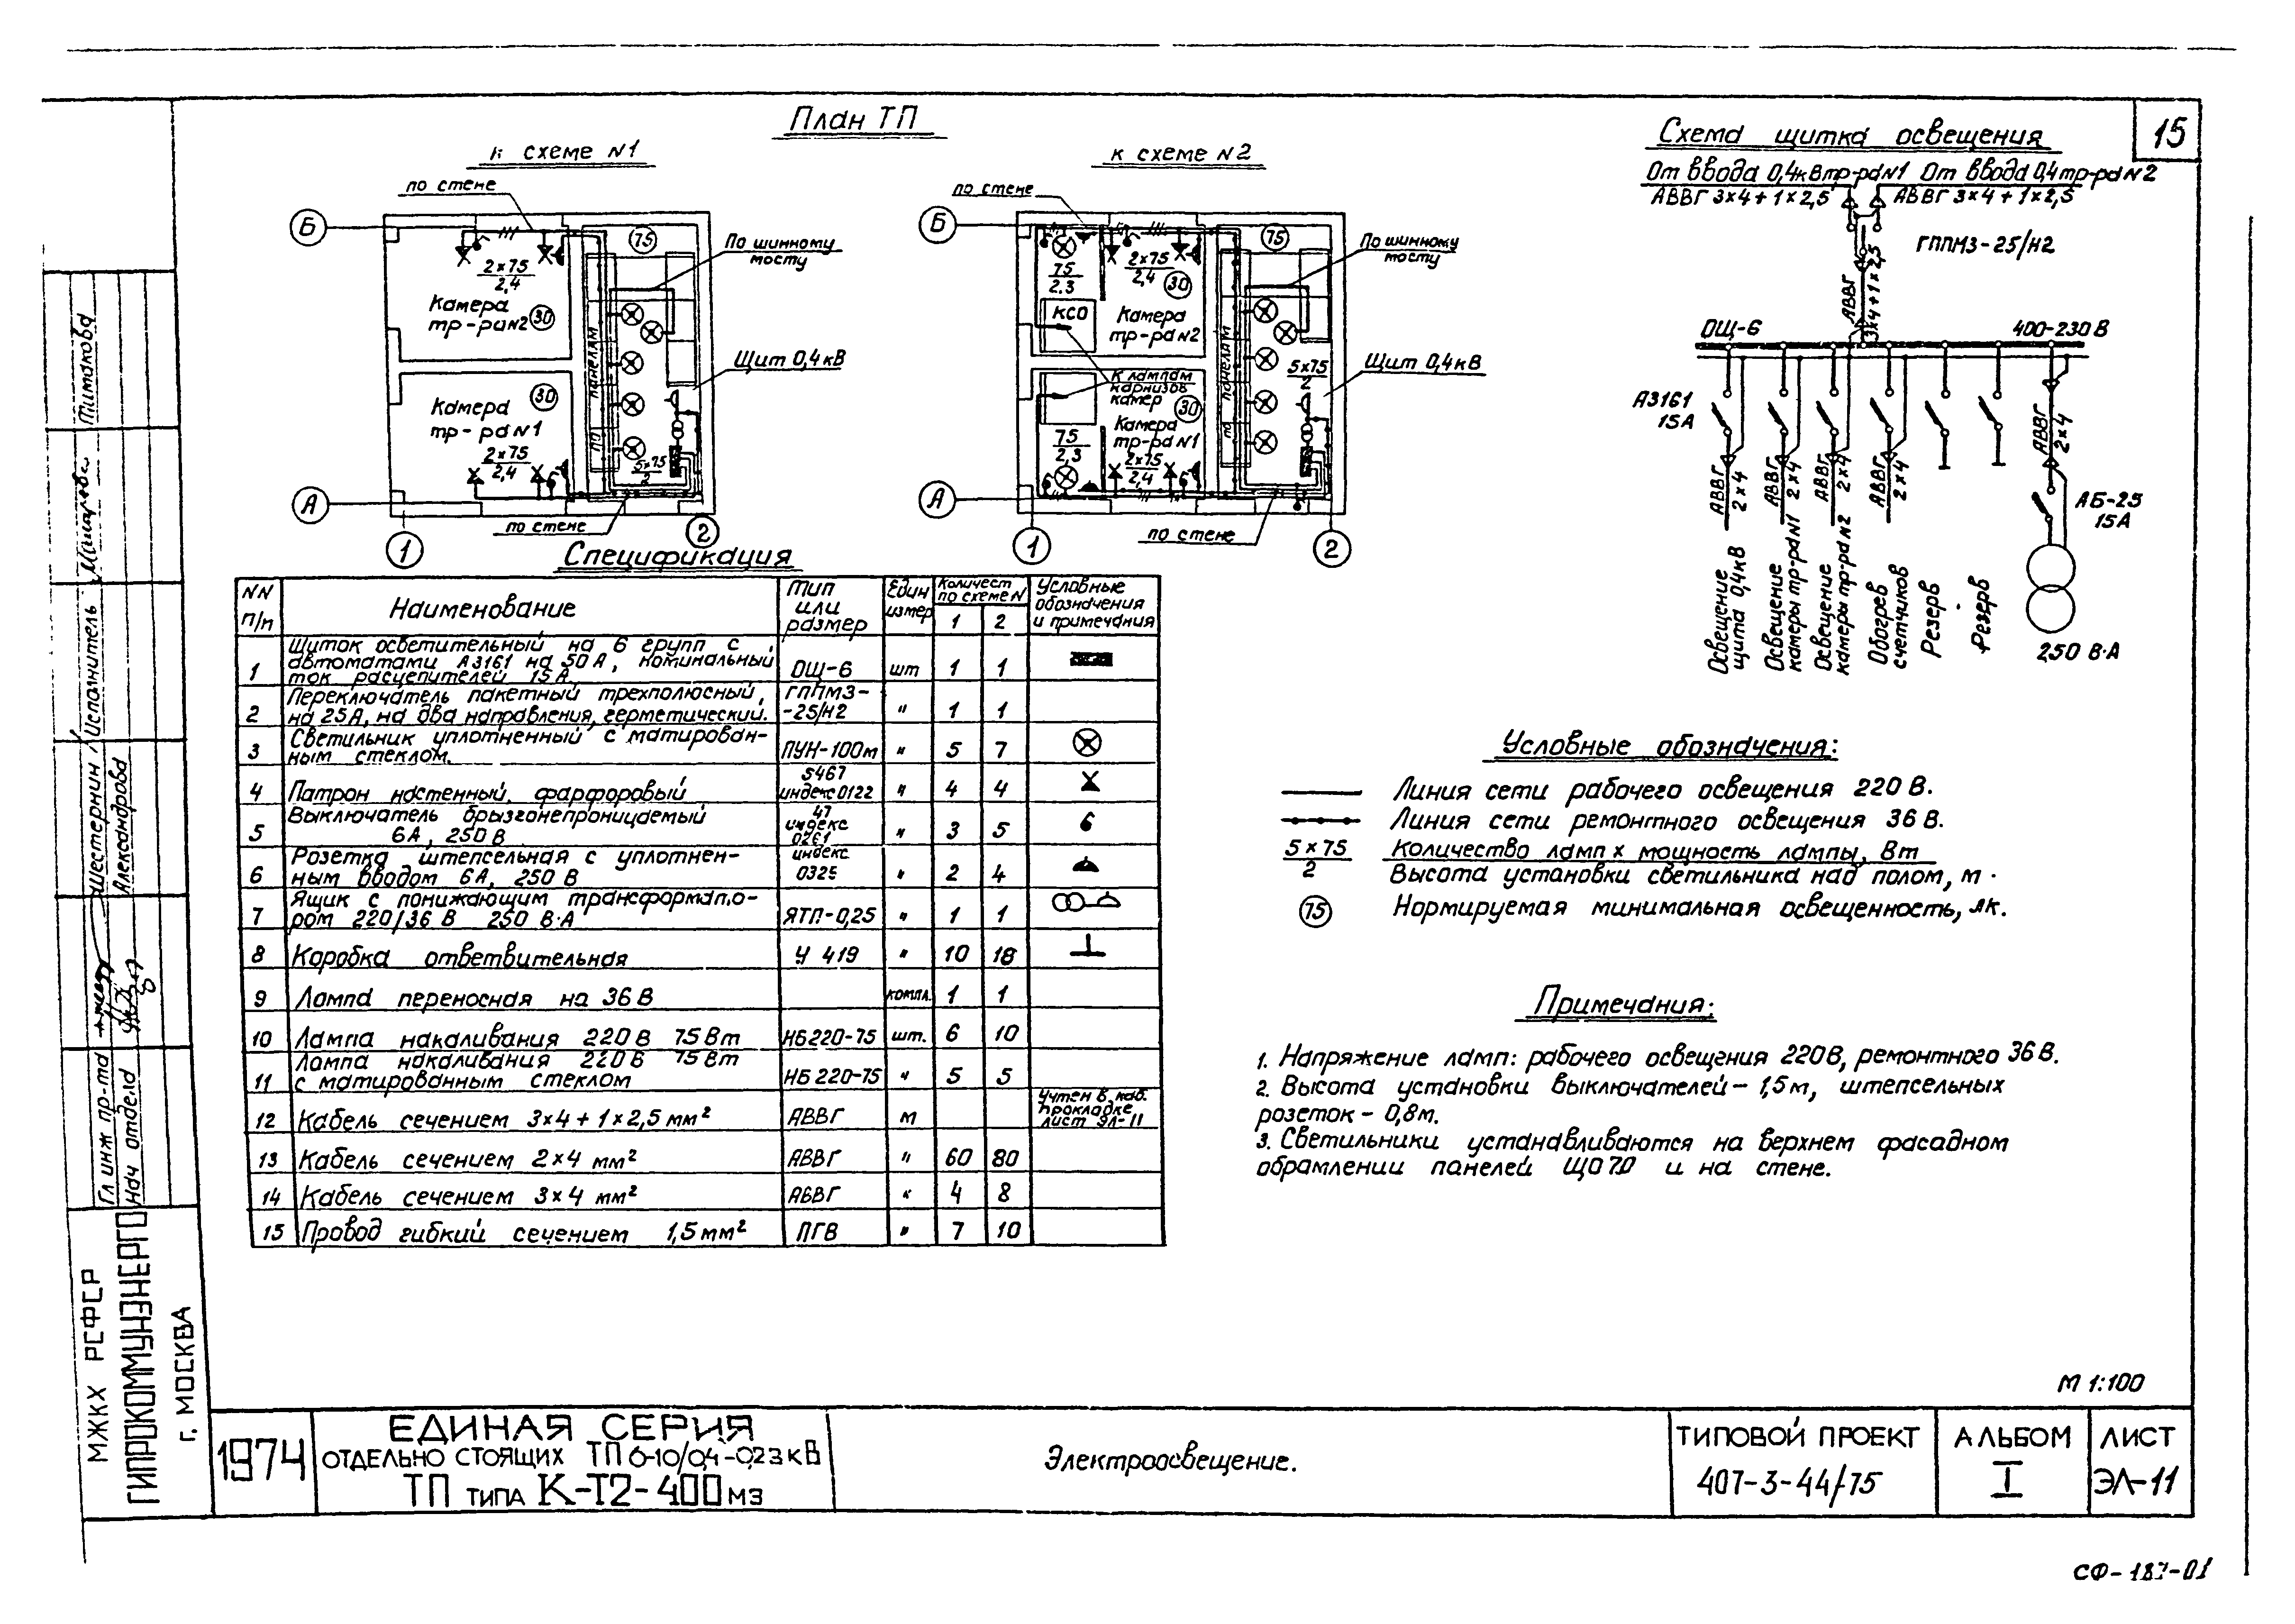 15
План ТП
к схеме №1
по стене
Б
75
По шинному
мосту
2×75
2,4
Камера
тр-ра №2
30
по панелям
Щит 0,4кВ
Камера
тр-ра №1
30
2×75
2,4
5×75
2
А
по стене
1
2
к схеме №2
по стене
Б
75
По шинному
мосту
75
2.3
2×75
2,4
30
КСО
Камера
тр-ра №2
по панелям
К лампам
карнизов
камер
5×75
2
Щит 0,4кВ
30
Камера
тр-ра №1
75
2,3
2×75
2,4
А
по стене
1
2
Схема щитка освещения
От ввода 0,4кВ тр-ра №1 От ввода 0,4 тр-ра №2
АВВГ 3×4+1×2,5 АВВГ 3×4+1×2,5
ГППМ3-25/Н2
АВВГ
3×4+1×2,5
ОЩ-6
400-230 В
А3161
15А
АВВГ 2×4
АВВГ 2×4
АВВГ 2×4
АВВГ 2×4
АВВГ 2×4
АБ-25
15А
Освещение
щита 0,4кВ
Освещение
камеры тр-ра №1
Освещение
камеры тр-ра №2
Обогрев
счетчиков
Резерв
Резерв
250 В·А
Спецификация
NN п/п Наименование Тип или размер Един измер Количест по схеме N 1 2 Условные обозначения и примечания
1 Щиток осветительный на 6 групп с автоматами А3161 на 50А, номинальный ток расцепителей 15А. ОЩ-6 шт 1 1
2 Переключатель пакетный трехполюсный, на 25А, на два направления, герметический. ГППМ3-25/Н2 " 1 1
3 Светильник уплотненный с матированным стеклом. ПУН-100м " 5 7
4 Патрон настенный, фарфоровый 5467 индекс 0122 " 4 4
5 Выключатель брызгонепроницаемый 6А, 250В 47 индекс 0261 " 3 5
6 Розетка штепсельная с уплотненным вводом 6А, 250 В индекс 0325 " 2 4
7 Ящик с понижающим трансформатором 220/36 В 250 В·А ЯТП-0,25 " 1 1
8 Коробка ответвительная У 419 " 10 18
9 Лампа переносная на 36В компл. 1 1
10 Лампа накаливания 220В 75Вт НБ220-75 шт. 6 10
11 Лампа накаливания 220В 75Вт с матированным стеклом НБ220-75 " 5 5
12 Кабель сечением 3×4+1×2,5 мм² АВВГ м Учтен в каб. прокладке лист ЭЛ-11
13 Кабель сечением 2×4 мм² АВВГ " 60 80
14 Кабель сечением 3×4 мм² АВВГ " 4 8
15 Провод гибкий сечением 1,5мм² ПГВ " 7 10
Условные обозначения:
Линия сети рабочего освещения 220В.
Линия сети ремонтного освещения 36В.
5×75 Количество ламп х мощность лампы, Вт
2 Высота установки светильника над полом, м.
75 Нормируемая минимальная освещенность, лк.
Примечания:
1. Напряжение ламп: рабочего освещения 220В, ремонтного 36В.
2. Высота установки выключателей - 1,5м, штепсельных
розеток - 0,8м.
3. Светильники устанавливаются на верхнем фасадном
обрамлении панелей ЩО70 и на стене.
М 1:100
МЖКХ РСФСР
ГИПРОКОММУНЭНЕРГО
г. МОСКВА
Гл инж пр-та
Нач отдела
Шестернин
Александрова
Исполнитель
Тимакова
1974
ЕДИНАЯ СЕРИЯ
ОТДЕЛЬНО СТОЯЩИХ ТП 6-10/0,4-0,23кВ
ТП ТИПА К-Т2-400 МЗ
Электроосвещение.
ТИПОВОЙ ПРОЕКТ
407-3-44/75
АЛЬБОМ
I
ЛИСТ
ЭЛ-11
СФ-187-01